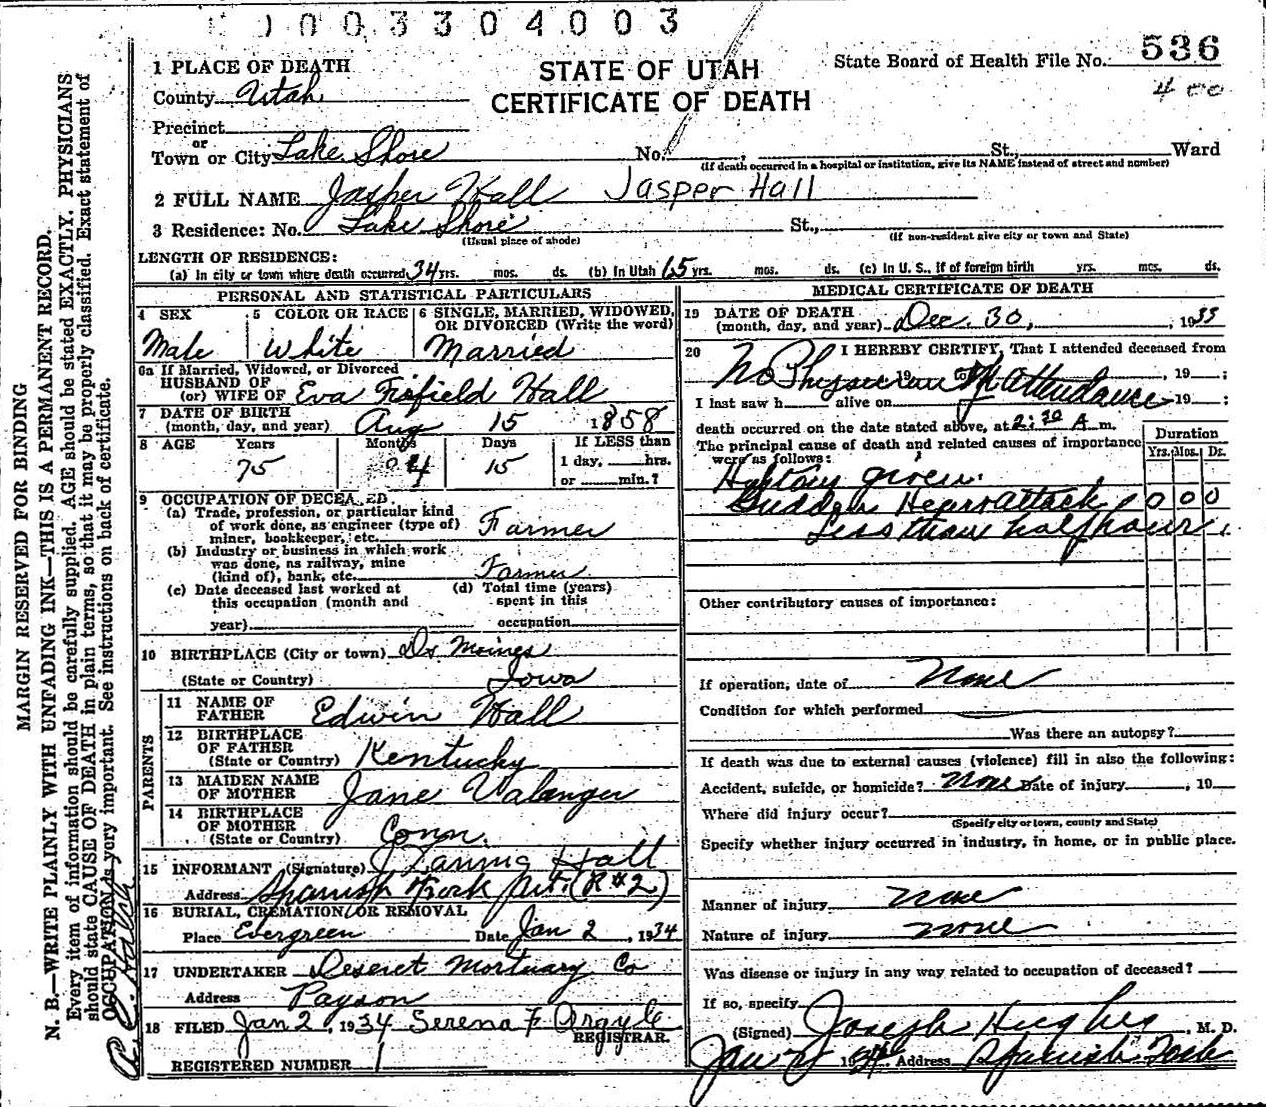 1003304003
State Board of Health File No. 536
400
STATE OF UTAH
CERTIFICATE OF DEATH
1 PLACE OF DEATH
County Utah
Precinct
or
Town or City Lake Shore No. , St., Ward
(If death occurred in a hospital or institution, give its NAME instead of street and number)
2 FULL NAME Jasper Hall Jasper Hall
3 Residence: No. Lake Shore St.,
(Usual place of abode) (If non-resident give city or town and State)
LENGTH OF RESIDENCE:
(a) In city or town where death occurred 34 yrs. mos. ds. (b) In Utah 65 yrs. mos. ds. (c) In U. S., if of foreign birth yrs. mos. ds.
PERSONAL AND STATISTICAL PARTICULARS
4 SEX 5 COLOR OR RACE 6 SINGLE, MARRIED, WIDOWED,
OR DIVORCED (Write the word)
Male White Married
6a If Married, Widowed, or Divorced
HUSBAND OF
(or) WIFE OF Eva Hall
7 DATE OF BIRTH
(month, day, and year) Aug 15 1858
8 AGE Years Months Days If LESS than
75 4 15 1 day, hrs.
or min.?
9 OCCUPATION OF DECEASED
(a) Trade, profession, or particular kind
of work done, as engineer (type of)
miner, bookkeeper, etc. Farmer
(b) Industry or business in which work
was done, as railway, mine
(kind of), bank, etc. Farmer
(c) Date deceased last worked at (d) Total time (years)
this occupation (month and spent in this
year) occupation
10 BIRTHPLACE (City or town) Ds Moines
(State or Country) Iowa
PARENTS
11 NAME OF
FATHER Edwin Hall
12 BIRTHPLACE
OF FATHER
(State or Country) Kentucky
13 MAIDEN NAME
OF MOTHER Jane Valanger
14 BIRTHPLACE
OF MOTHER
(State or Country) Conn.
15 INFORMANT (Signature) J Hall
Address Spanish Fork Ut. (R#2)
16 BURIAL, CREMATION OR REMOVAL
Place Evergreen Date Jan 2, 1934
17 UNDERTAKER Deseret Mortuary Co
Address Payson
18 FILED Jan 2, 1934 Serena F Argyle
REGISTRAR.
REGISTERED NUMBER 1
MEDICAL CERTIFICATE OF DEATH
19 DATE OF DEATH
(month, day, and year) Dec. 30, , 1933
20 I HEREBY CERTIFY, That I attended deceased from
No Physician in attendance , 19 ;
I last saw h alive on 19 ;
death occurred on the date stated above, at 2:30 A m.
The principal cause of death and related causes of importance
were as follows:
Duration
Yrs. Mos. Ds.
History given.
Sudden Heart attack 0 0 0
Less than half hour
Other contributory causes of importance:
If operation, date of None
Condition for which performed
Was there an autopsy?
If death was due to external causes (violence) fill in also the following:
Accident, suicide, or homicide? None Date of injury , 19
Where did injury occur?
(Specify city or town, county and State)
Specify whether injury occurred in industry, in home, or in public place.
Manner of injury None
Nature of injury None
Was disease or injury in any way related to occupation of deceased?
If so, specify
(Signed) Joseph Hughes, M. D.
Jan 2 1934 Address Spanish Fork
MARGIN RESERVED FOR BINDING
N. B.—WRITE PLAINLY WITH UNFADING INK—THIS IS A PERMANENT RECORD.
Every item of information should be carefully supplied. AGE should be stated EXACTLY. PHYSICIANS
should state CAUSE OF DEATH in plain terms, so that it may be properly classified. Exact statement of
OCCUPATION is very important. See instructions on back of certificate.